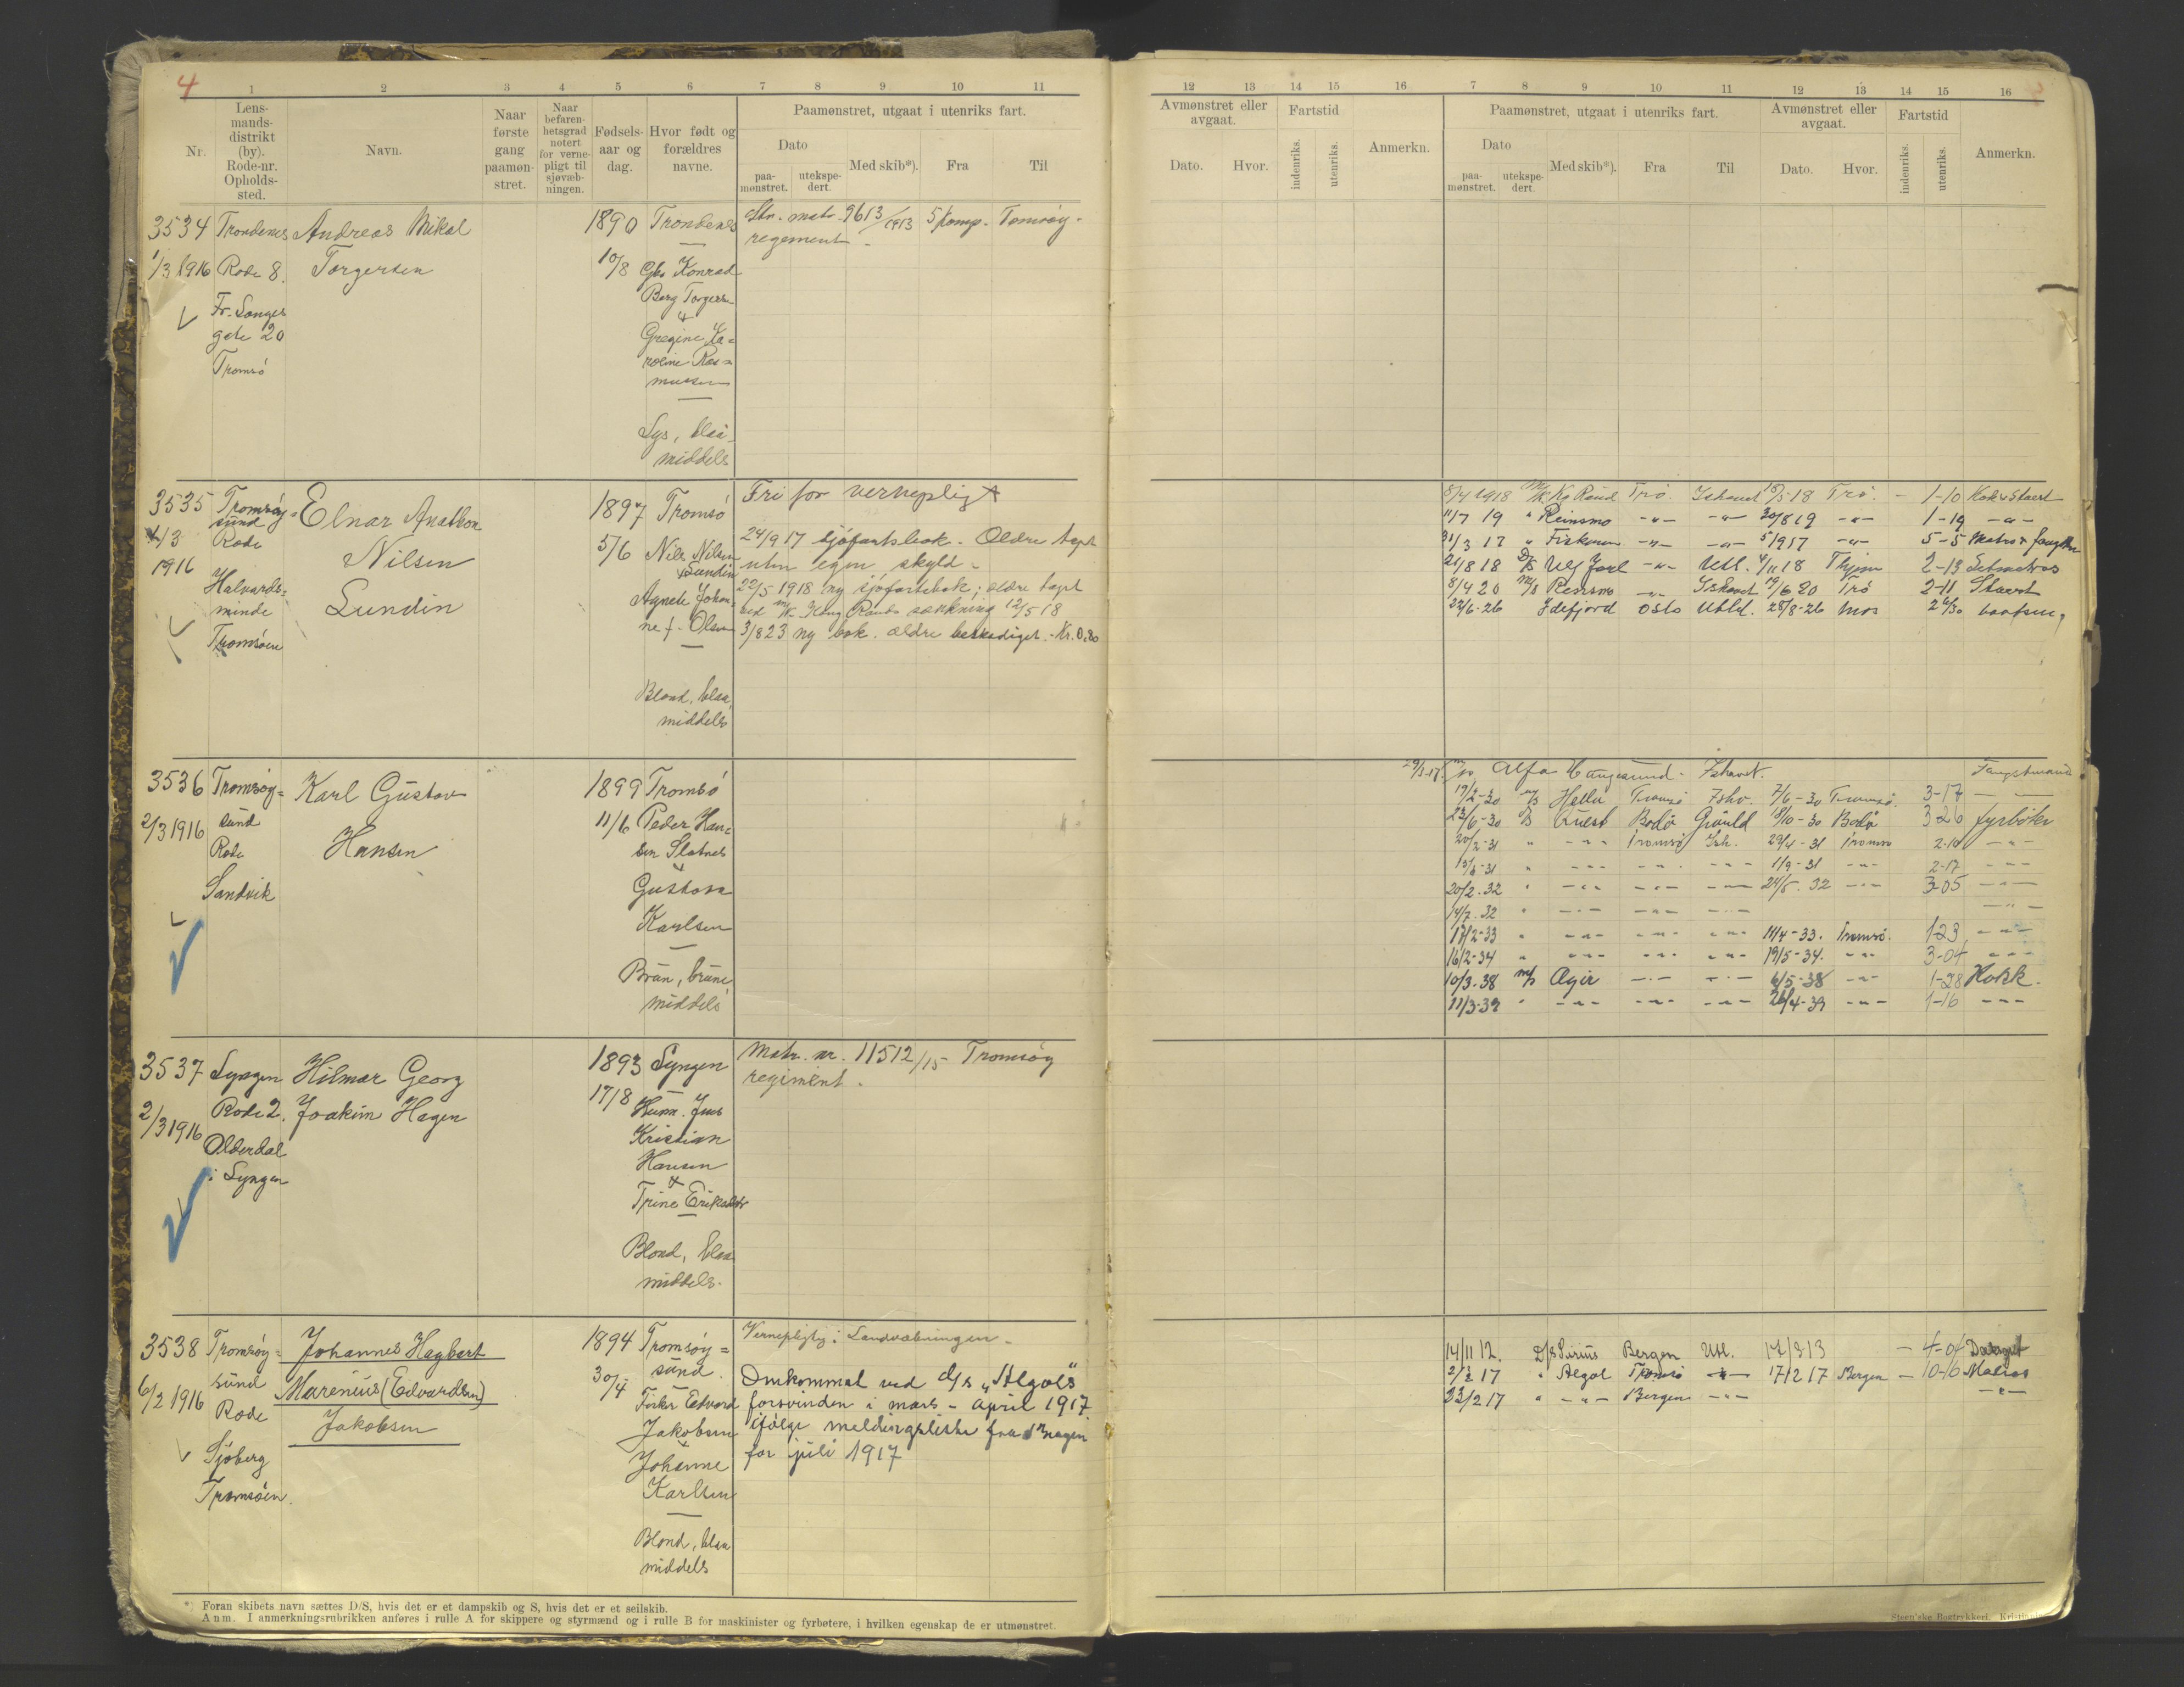 4
1 2 3 4 5 6 7 8 9 10 11
Nr.
Lens-
mands-
distrikt
(by).
Rode-nr.
Opholds-
sted.
Navn.
Naar
første
gang
paamøn-
stret.
Naar
befaren-
hetsgrad
notert
for verne-
pligt til
sjøvæb-
ningen.
Fødsels-
aar og
dag.
Hvor født og
forældres
navne.
Paamønstret, utgaat i utenriks fart.
Dato
paa-
mønstret.
utekspe-
dert.
Med skib*).
Fra
Til
3534
1/3 1916
Trondenes
Rode 8.
Fr. Langes
gate 20
Tromsö
Andreas Mikal
Torgersen
1890
10/8
Trondenes
Gbr Konrad
Berg Torgersen
&
Gregine Ka=
roline Ras=
mussen
Lys, blaa
middels
Str. matr. 9613/1913 5 komp. Tomsøy-
regement
3535
1916
Tromsöy=
sund
Rode
Halvards=
minde
Tromsöen
Einar Anathon
Nilsen
Lundin
1897
5/6
Tromsö
Nils Nilsen
Lundin
Agnete Johan=
ne f. Olsen
Blond, blaa,
middels
Fri for vernepligt
24/9 17 sjöfartsbok. Oldre tapt
uten egen skyld.
22/5 1918 ny sjöfartsbok; ældre tapt
ved M/K Kong Rauds sænkning 12/5 18
3/8 23 ny bok. ældre beskadiget. Kr. 0,80
3536
2/3 1916
Tromsöy=
sund
Rode
Sandvik
Karl Gustav
Hansen
1899
11/6
Tromsö
Peder Han=
sen Slatnes
&
Gustava
Karlsen
Brun, brune,
middels
3537
2/3 1916
Lyngen
Rode 2.
Olderdal
i Lyngen
Hilmar Georg
Joakim Hagen
1893
17/8
Lyngen
Husm. Jens
Kristian
Hansen
&
Trine Eriksdtr
Blond, blaa
middels.
Matr. nr. 11512/15 Tromsöy
regiment.
3538
6/2 1916
Tromsöy=
sund
Rode
Sjöberg
Tromsöen.
Johannes Hagbart
Marenius (Edvardsen)
Jakobsen
1894
30/4
Tromsöy=
sund.
Fisker Edvard
Jakobsen
&
Johanne
Karlsen
Blond, blaa
middels
Vernepligtig i Landvæbningen.
Omkommet ved d/s "Algol's"
forsvinden i mars - april 1917
ifølge meldingsliste fra
for juli 1917
*) Foran skibets navn sættes D/S, hvis det er et dampskib og S, hvis det er et seilskib.
Anm. I anmerkningsrubrikken anføres i rulle A for skippere og styrmænd og i rulle B for maskinister og fyrbøtere, i hvilken egenskap de er utmønstret.
12 13 14 15 16 7 8 9 10 11 12 13 14 15 16
Avmønstret eller
avgaat.
Dato. Hvor.
Fartstid
indenriks. utenriks.
Anmerkn.
Paamønstret, utgaat i utenriks fart.
Dato
paa-
mønstret.
utekspe-
dert.
Med skib*).
Fra
Til
Avmønstret eller
avgaat.
Dato. Hvor.
Fartstid
indenriks. utenriks.
Anmerkn.
8/4 1918 M/K Kg Raud Trö. Ishavet 18/5-18 Trö. - 1-10 Kok & Stuert
11/7 19 " Reinsmo -"- -"- 30/8 19 -"- 1-19 -"-
31/3 17 " -"- -"- -"- 5-5 Matros &
21/8 18 D/S Ulf Jarl -"- Utl. 4/11 18 Thjem 2-13
8/4 20 M/S Reinsmo -"- Ishavet 19/6 20 Trö 2-11 Stuert
22/6-26 Idefjord Oslo Utld. 28/8-26 Mos
Alfa Haugesund - Ishavet. Fangstmand
19/2-30 M/S Hella Tromsö Ishv. 7/6-30 Tromsö. 3-17 -"-
23/6-30 Quest Bodö Grönld 18/10-30 Bodö 3-26 fyrböter
20/2-31 " -"- Tromsö Ish. 29/4-31 Tromsö 2-10 -"-
" -"- -"- -"- 11/9-31 -"- 2-17 -"-
20/2.32 " -"- -"- -"- 24/5.32 -"- 3-05 -"-
14/7.32 " -"- -"- -"- -"-
17/2-33 " -"- -"- -"- 11/4-33. Tromsö. 1-23 -"-
16/2-34 " -"- -"- -"- 19/5-34. -"- 3-04 -"-
10/3.38 M/S Ægir -"- -"- 6/5-38 -"- 1-28 Kokk.
11/3-39 " -"- -"- -"- 26/4-39 -"- 1-16 -"-
14/11 12. D/S Sirius Bergen Utl. 17/3 13 - 4-04
2/2 17 " Algol Tromsö -"- 17/2 17 Bergen - Matros
23/2 17 " -"- Bergen -"- -"-
Steen'ske Bogtrykkeri. Kristiania